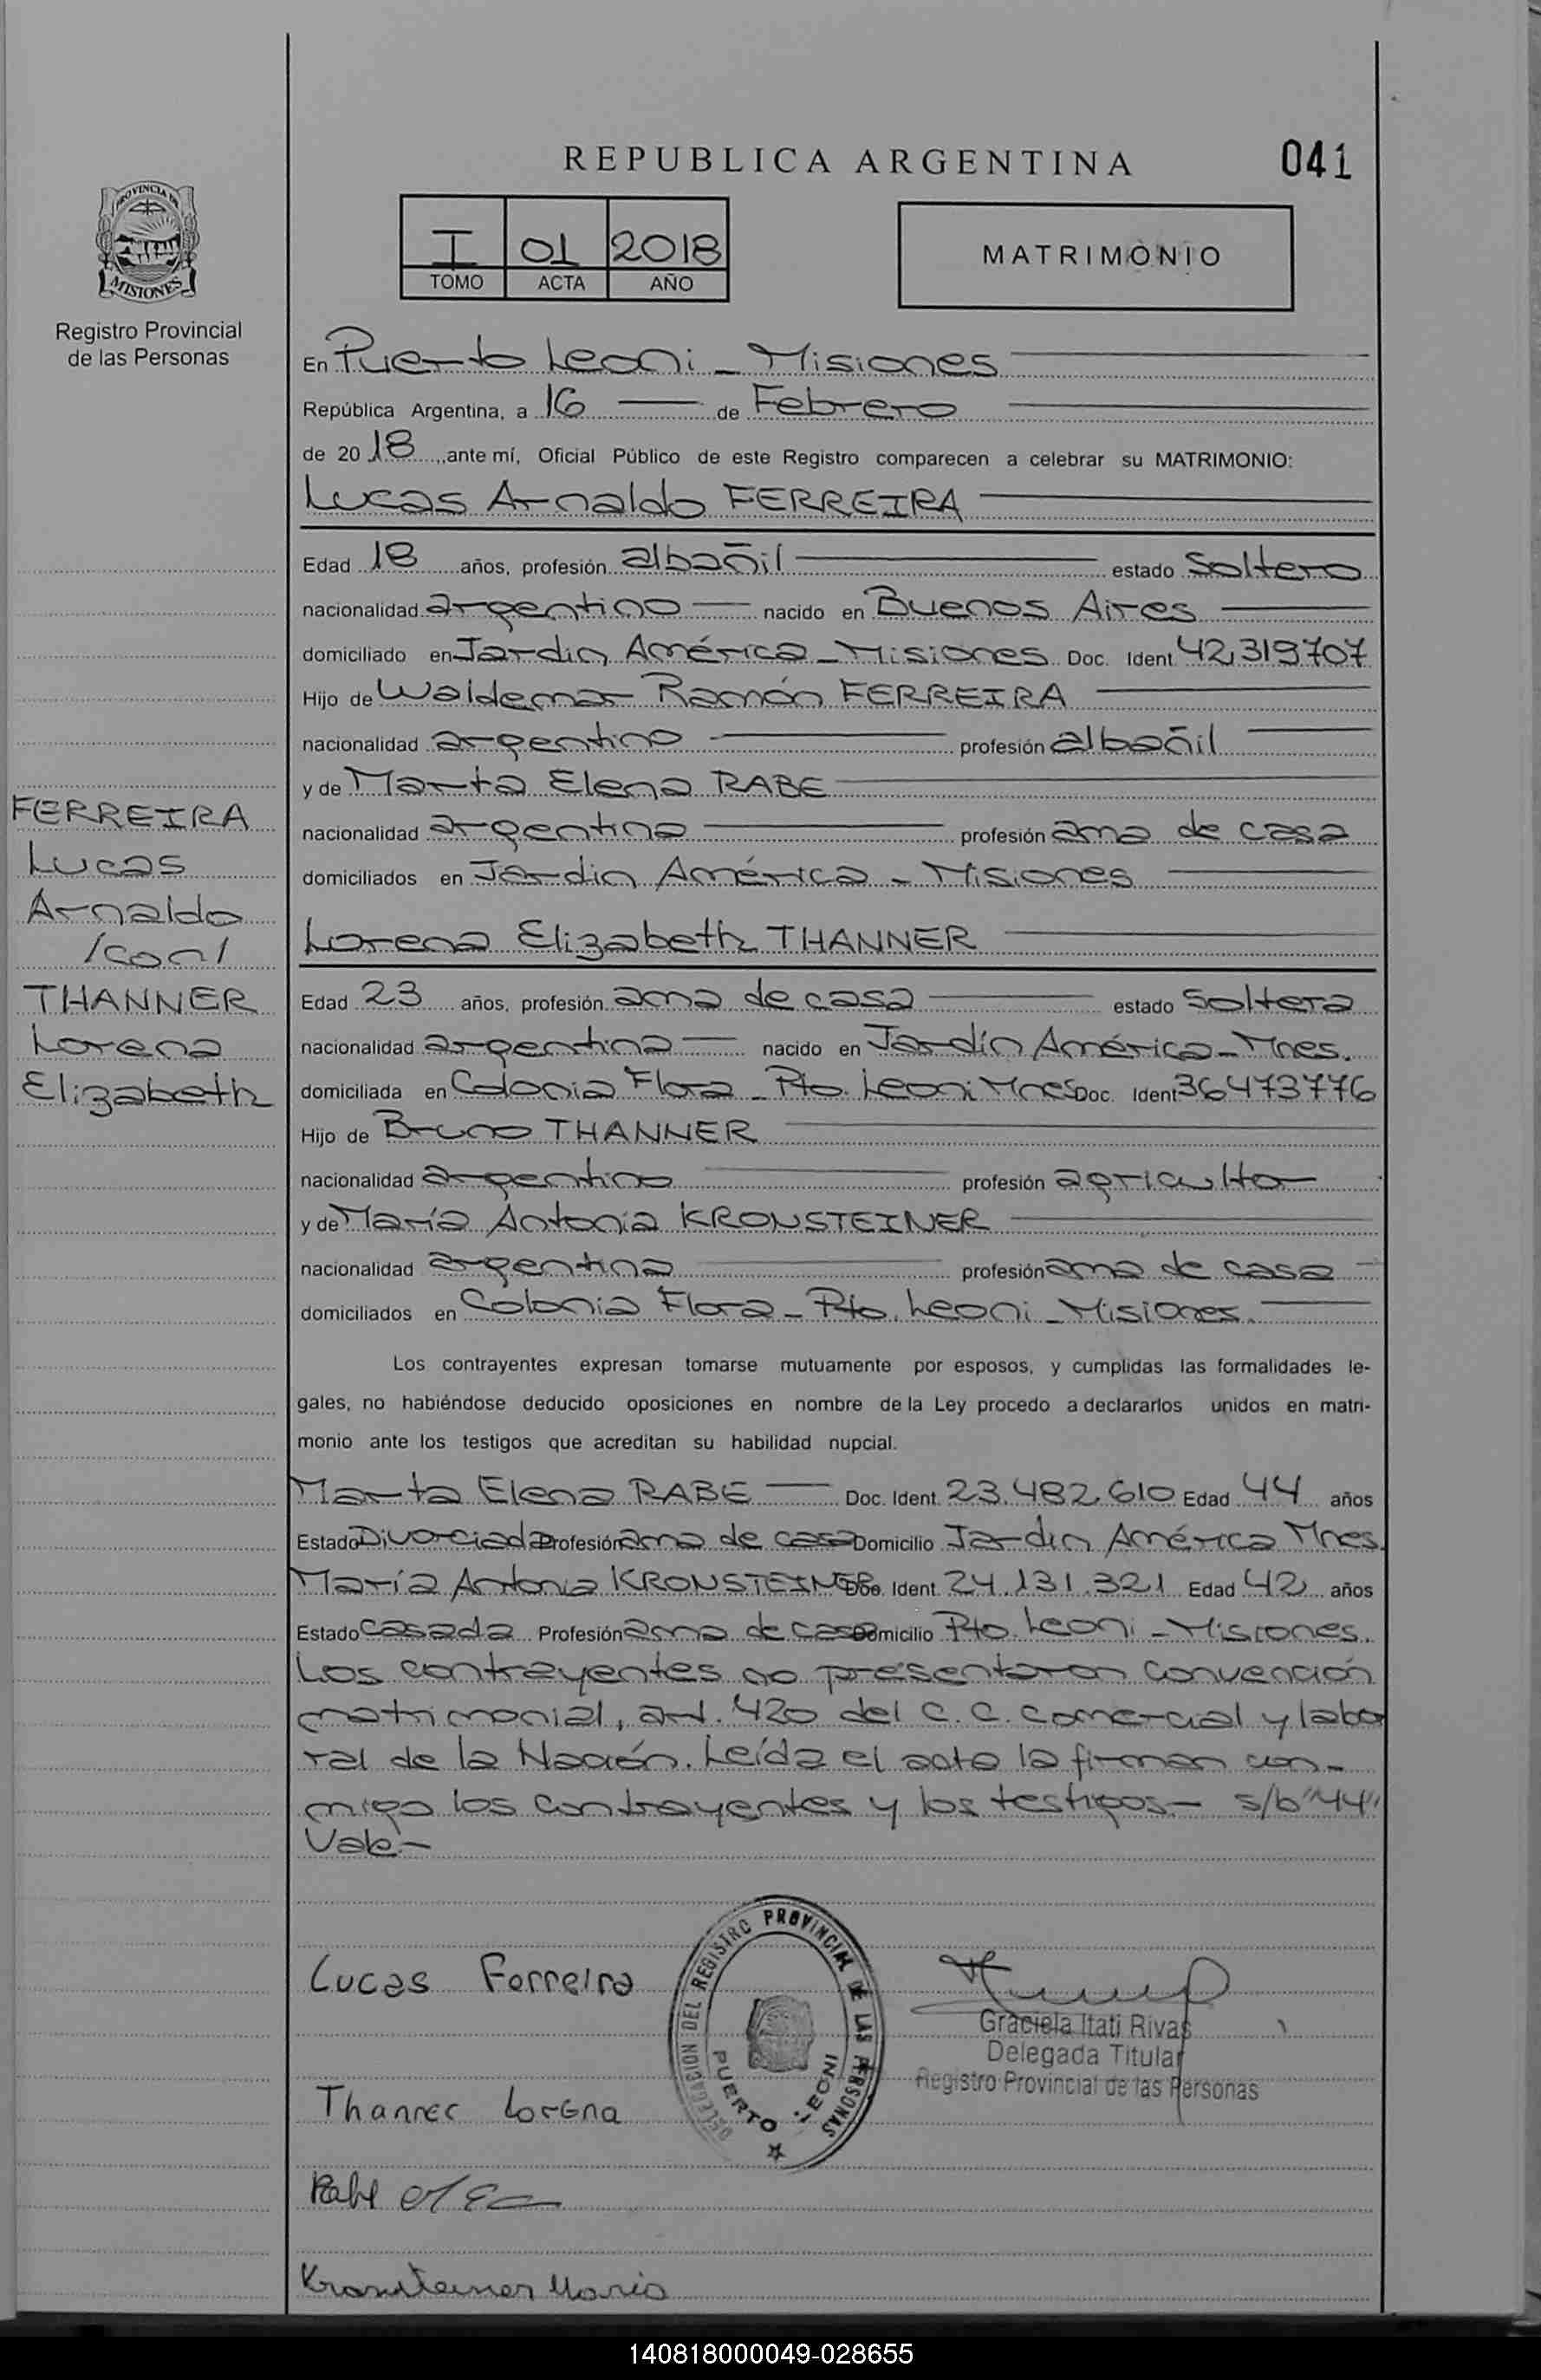 REPUBLICA ARGENTINA
041
PROVINCIA DE
MISIONES
Registro Provincial
de las Personas
I 01 2018
TOMO ACTA AÑO
MATRIMONIO
En Puerto Leoni - Misiones
República Argentina, a 16 de Febrero
de 2018, ante mí, Oficial Público de este Registro comparecen a celebrar su MATRIMONIO:
Lucas Arnaldo FERREIRA
Edad 18 años, profesión albañil estado Soltero
nacionalidad argentino nacido en Buenos Aires
domiciliado en Jardin América - Misiones Doc. Ident 42,319707
Hijo de Waldemar Ramón FERREIRA
nacionalidad argentino profesión albañil
y de Marta Elena RABE
nacionalidad argentina profesión ama de casa
domiciliados en Jardin América - Misiones
FERREIRA
Lucas
Arnaldo
/con/
THANNER
Lorena
Elizabeth
Lorena Elizabeth THANNER
Edad 23 años, profesión ama de casa estado Soltera
nacionalidad argentina nacido en Jardín América - Mnes.
domiciliada en Colonia Flora - Pto. Leoni Mnes Doc. Ident 36473776
Hijo de Bruno THANNER
nacionalidad argentino profesión agricultor
y de María Antonia KRONSTEINER
nacionalidad argentina profesión ama de casa
domiciliados en Colonia Flora - Pto. Leoni - Misiones.
Los contrayentes expresan tomarse mutuamente por esposos, y cumplidas las formalidades le-
gales, no habiéndose deducido oposiciones en nombre de la Ley procedo a declararlos unidos en matri-
monio ante los testigos que acreditan su habilidad nupcial.
Marta Elena RABE Doc. Ident. 23.482.610 Edad 44 años
Estado Divorciada Profesión ama de casa Domicilio Jardin América Mnes.
María Antonia KRONSTEINER Doc. Ident. 24.131.321 Edad 42 años
Estado casada Profesión ama de casa Domicilio Pto. Leoni - Misiones.
Los contrayentes no presentaron convención
matrimonial, art. 420 del C. C. Comercial y labo
ral de la Nación. Leída el acta la firman con-
migo los contrayentes y los testigos - s/b "44"
Vale.-
Lucas Ferreira
DELEGACION DEL REGISTRO PROVINCIAL DE LAS PERSONAS
PUERTO LEONI
Graciela Itati Rivas
Delegada Titular
Registro Provincial de las Personas
Thanner Lorena
Kronsteiner Maria
140818000049-028655